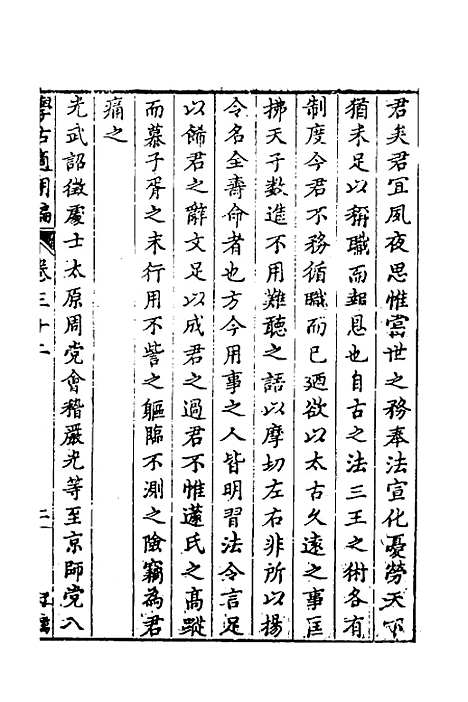 君矣君宜夙夜思惟當世之務奉法宣化憂勞天下
猶未足以稱職而報恩也自古之法三王之術各有
制度今君不務循職而已廼欲以太古久遠之事匡
拂天子數進不用難聽之語以摩切左右非所以揚
令名全壽命者也方今用事之人皆明習法令言足
以飾君之辭文足以成君之過君不惟蘧氏之高蹤
而慕子胥之末行用不訾之軀臨不測之險竊為君
痛之
光武詔徵處士太原周党會稽嚴光等至京師党入
學古適用編
卷三十二
二